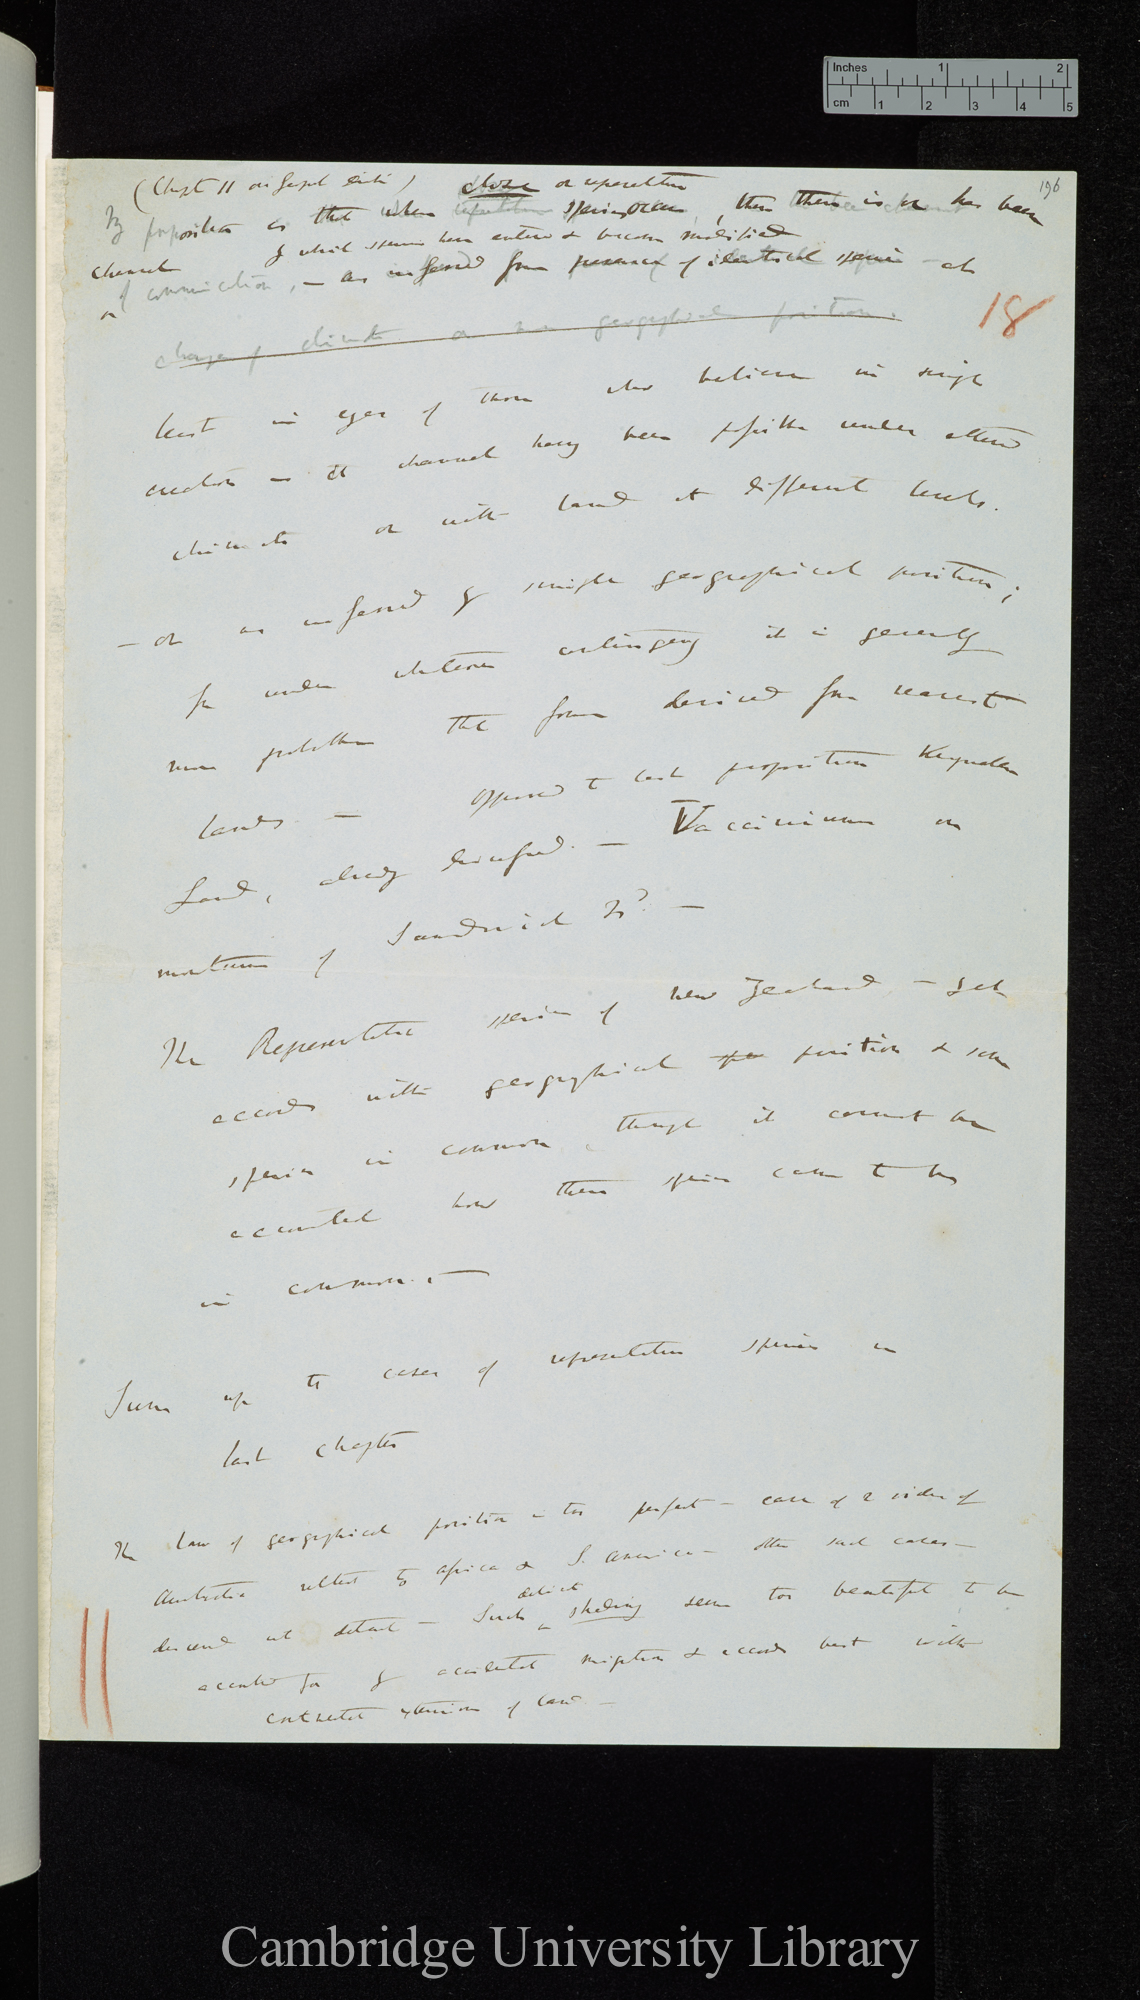 Inches 1 2
cm 1 2 3 4 5
196
(Chapt 11 on Geograph distrib)
close or representative
My proposition is that when species occur, then there is or has been
channel by which species have entered & become modified
of communication, — as inferred from presence of identical species — at
18
change of climate or on geographical position.
least in eyes of those who believe in single
creation — or channel having been possible under altered
climate or with land at different levels.
— or as inferred by simple geographical position;
for under whatever contingency it is generally
more probable that forms derived from nearest
lands. — opposed to last proposition Kerguelen
Land, already discussed. — Vaccinium on
mountains of Sandwich Is? —
The Representative species of New Zealand — yet
accords with geographical position & some
species in common, though it cannot be
accounted how these species came to be
in common. —
Sum up the cases of representative species in
last chapter
The law of geographical position is too perfect — case of 2 sides of
Australia related to Africa & S. America — other such cases —
descend into detail — Such distinct shading seems too beautiful to be
accounted for by accidental migration & accords best with
continental extension of land —
Cambridge University Library